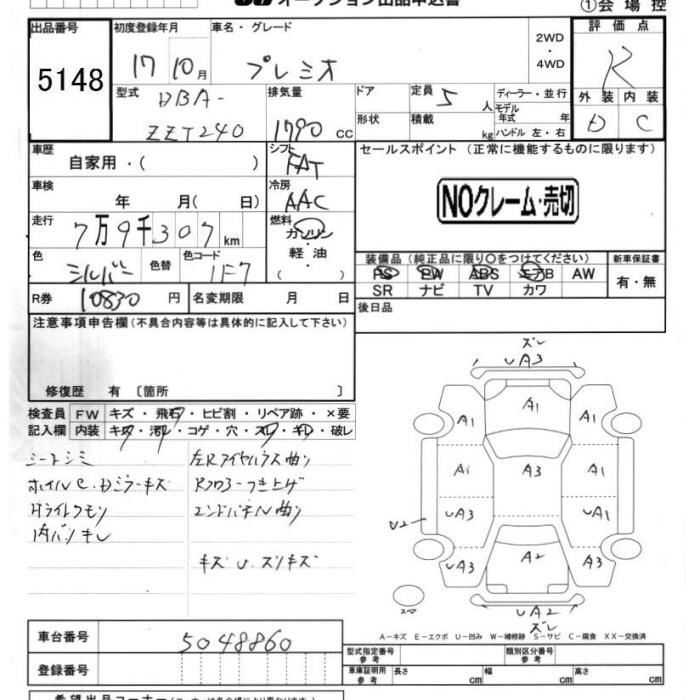 オークション出品申込書
①会場控
出品番号 初度登録年月 車名・グレード 評価点
5148
17 10月 プレミオ 2WD・4WD R
型式 排気量 ドア 定員 5人 ディーラー・並行 外装 内装
DBA-ZZT240 1790cc 形状 積載 kg モデル年式 年 ハンドル 左・右 D C
車歴 シフト セールスポイント (正常に機能するものに限ります)
自家用・( ) FAT
車検 冷房
年 月( 日) AAC NOクレーム・売切
走行 燃料
7万9千307km ガソリン
軽・油
( )
色 シルバー 色替 色コード 1F7
装備品(純正品に限り○をつけてください) 新車保証書
PS PW ABS エアB AW 有・無
SR ナビ TV カワ
R券 10830円 名変期限 月 日 後日品
注意事項申告欄(不具合内容等は具体的に記入して下さい)
修復歴 有〔箇所 〕
検査員記入欄 FW キズ・飛石・ヒビ割・リペア跡・×要
内装 キズ・汚れ・コゲ・穴・スレ・キレ・破レ
シートシミ
ホイルC.Dミラーキズ
Hライトクモリ
内バリキレ
左Rタイヤハウス曲り
Rフロアーつき上げ
エンドパネル曲り
キズU.スリキズ
ズレ
UA3
A1
A1 A1
A1 A3 A1
UA3 UA1
U2
UA3 A2 UA3
スペア
UA2
ズレ
A-キズ E-エクボ U-凹み W-補修跡 S-サビ C-腐食 XX-交換済
車台番号 5048860
登録番号
型式指定番号 参考 類別区分番号 参考
車庫証明用 参考 長さ cm 幅 cm 高さ cm
希望出品コーナー